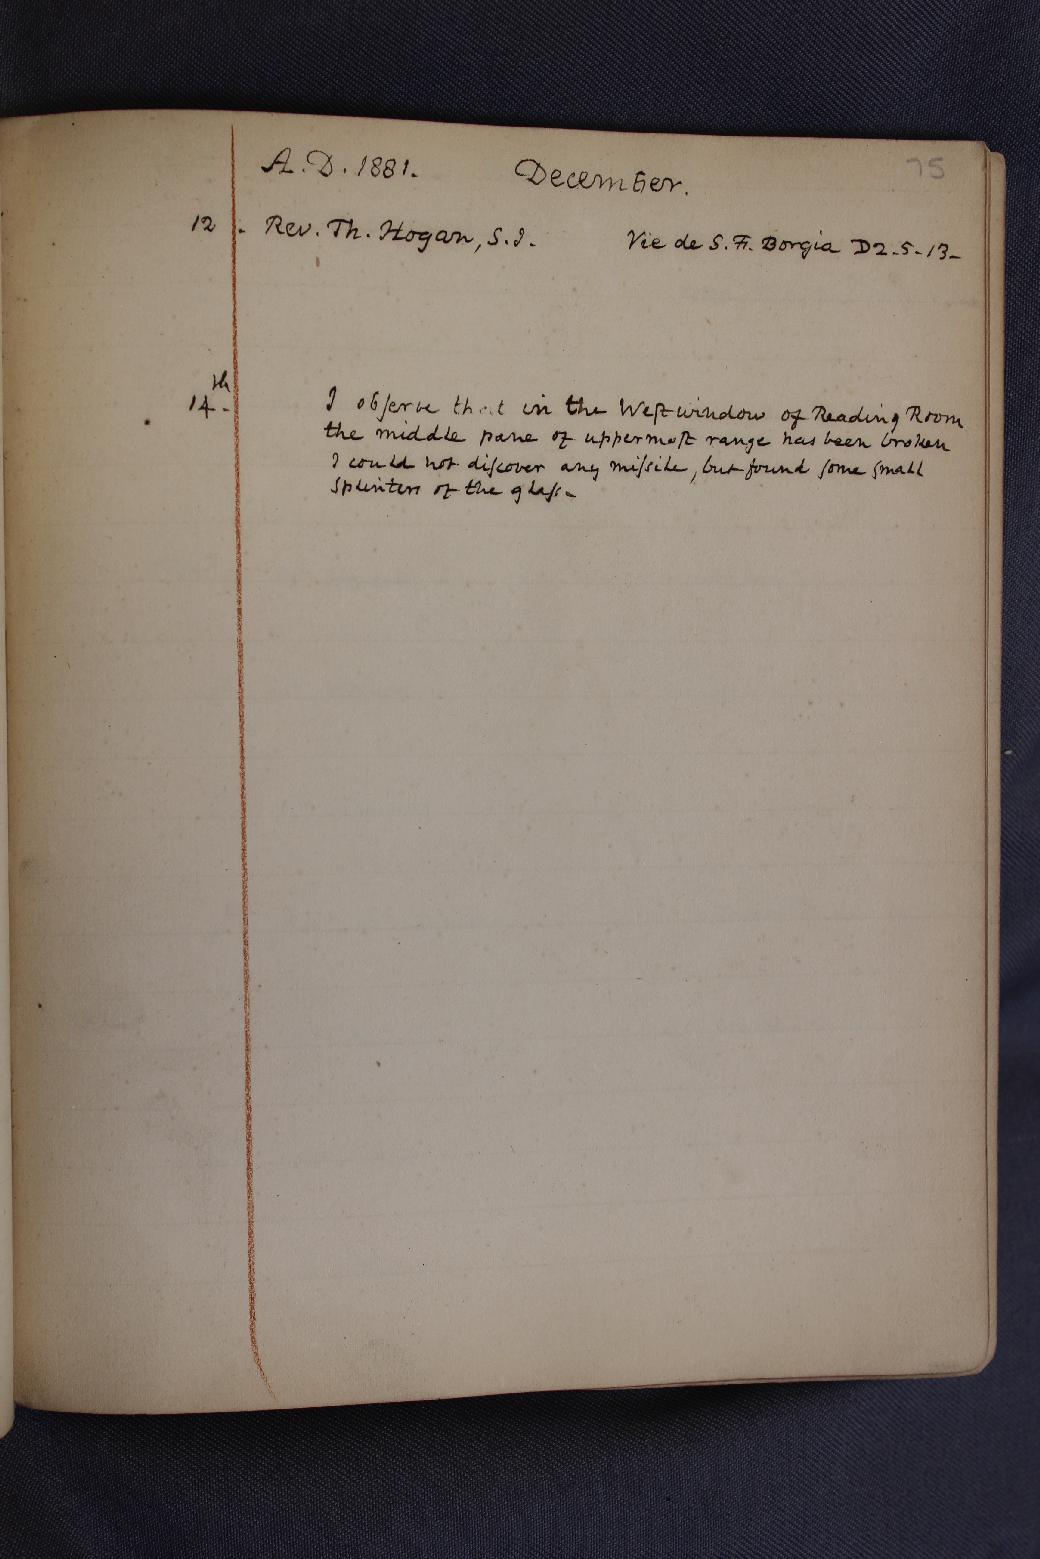 75
A. D. 1881. December.
12. Rev. Th. Hogan, S.J. Vie de S. F. Borgia D2-5-13-
14th. I obſerve that in the Weſt window of Reading Room
the middle pane of uppermoſt range has been broken
I could not diſcover any miſsile, but found ſome ſmall
Splinters of the glaſs-